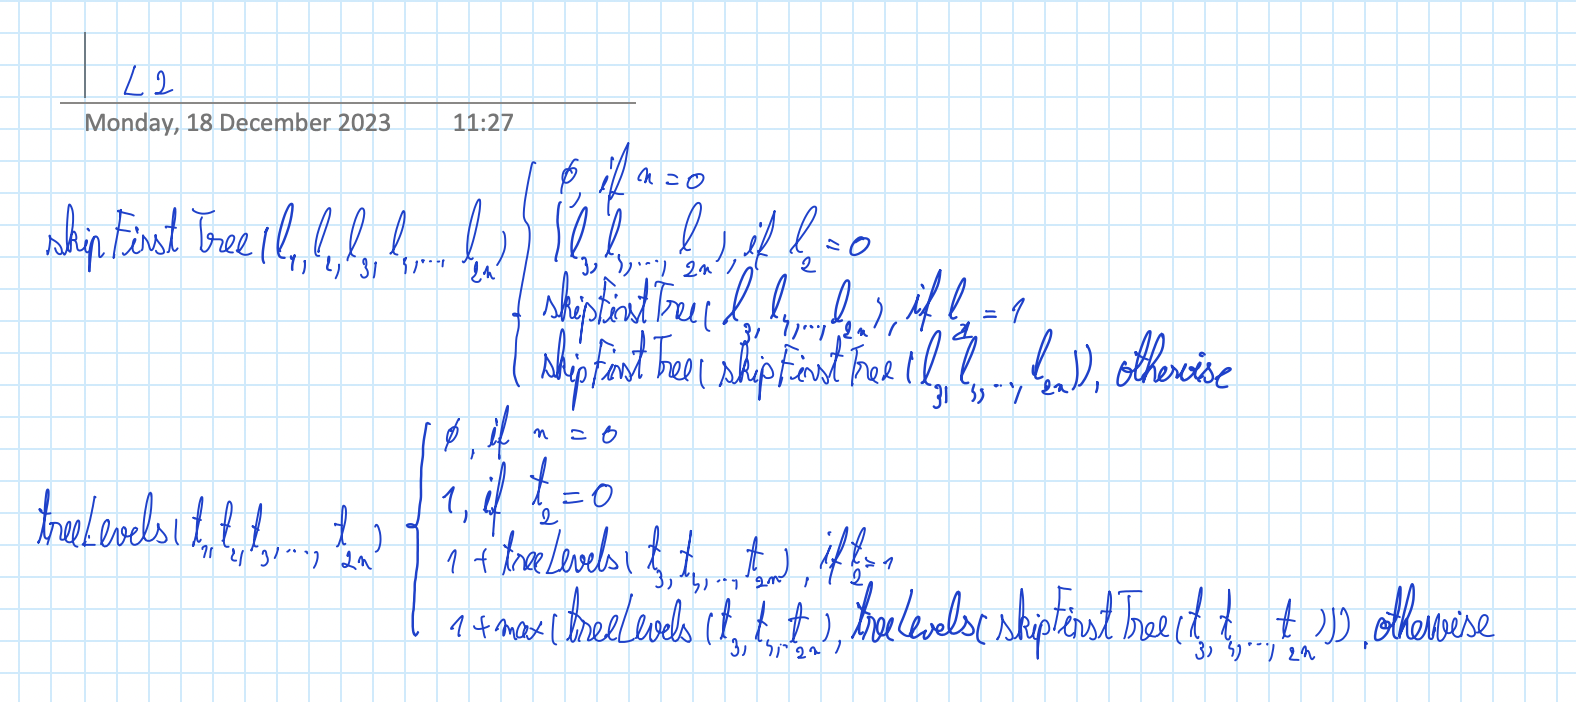 L2
Monday, 18 December 2023 11:27
skipFirstTree(l1, l2, l3, l4,..., l2n)
ø, if n = 0
(l3, l4,..., l2n), if l2 = 0
skipFirstTree(l3, l4,..., l2n), if l2 = 1
skipFirstTree(skipFirstTree(l3, l4,..., l2n)), otherwise
treeLevels(t1, t2, t3,..., t2n)
ø, if n = 0
1, if t2 = 0
1 + treeLevels(t3, t4,..., t2n), if t2 = 1
1 + max(treeLevels(t3, t4,.. t2n), treeLevels(skipFirstTree(t3, t4,..., t2n))), otherwise